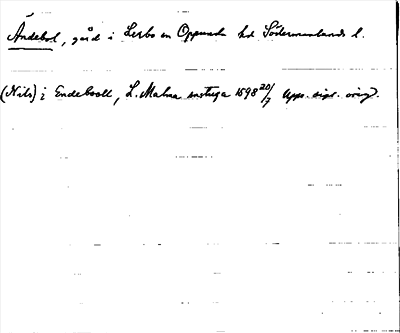 Ändebol, gård i Lerbo sn Oppunda hd Södermanlands l.
(Nils) i Endeboell, L. Malma sn stuga 1598 20/7 Upps. dipl. orig.